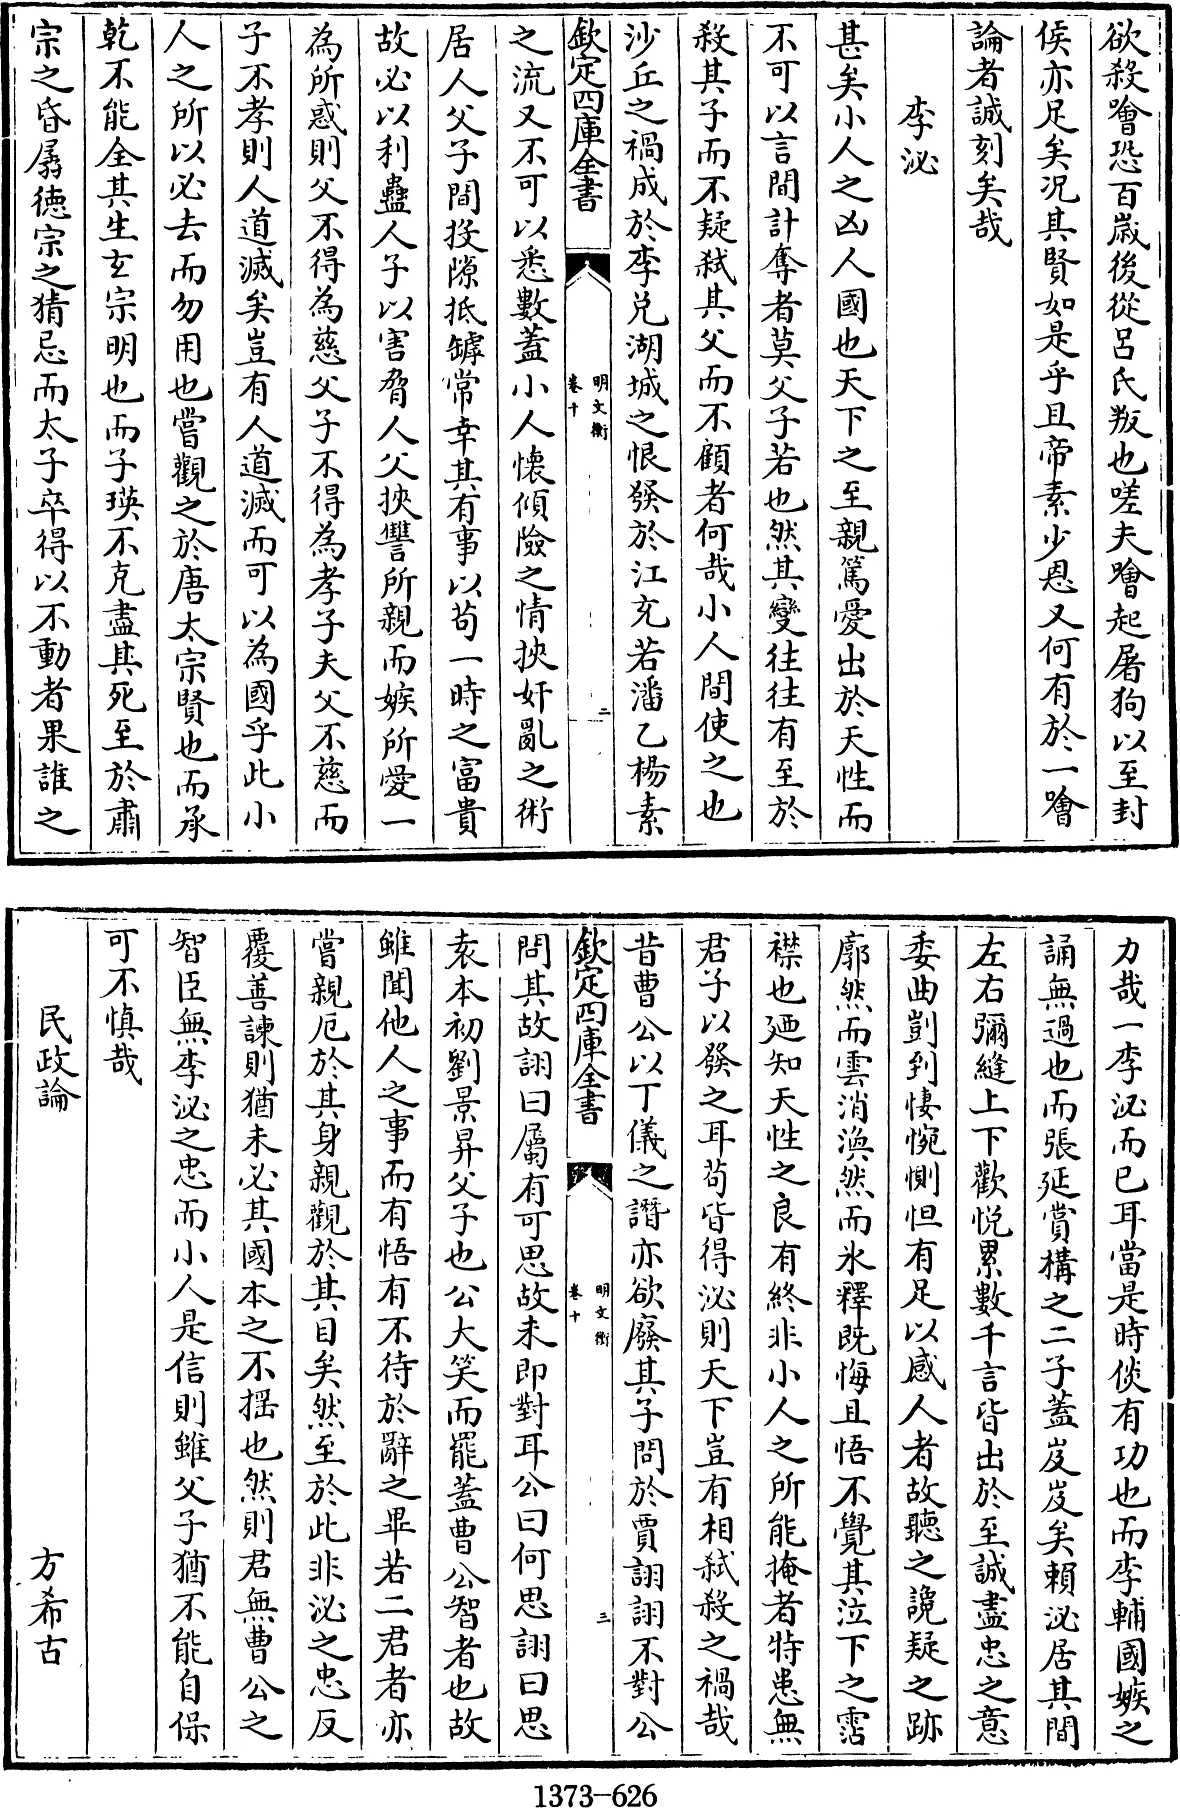 欲殺噲恐百歳後從呂氏叛也嗟夫噲起屠狗以至封
侯亦足矣况其賢如是乎且帝素少恩又何有於一噲
論者誠刻矣哉
李泌
甚矣小人之凶人國也天下之至親篤愛出於天性而
不可以言間計奪者莫父子若也然其變往往有至於
殺其子而不疑弑其父而不顧者何哉小人間使之也
沙丘之禍成於李兑湖城之恨發於江充若潘乙楊素
欽定四庫全書
明文衡
卷十
二
之流又不可以悉數蓋小人懐傾險之情挾奸亂之術
居人父子間投隙抵罅常幸其有事以苟一時之富貴
故必以利蠱人子以害脅人父挾讐所親而嫉所愛一
為所惑則父不得為慈父子不得為孝子夫父不慈而
子不孝則人道滅矣豈有人道滅而可以為國乎此小
人之所以必去而勿用也嘗觀之於唐太宗賢也而承
乾不能全其生玄宗明也而子瑛不克盡其死至於肅
宗之昏孱徳宗之猜忌而太子卒得以不動者果誰之
力哉一李泌而已耳當是時倓有功也而李輔國嫉之
誦無過也而張延賞構之二子蓋岌岌矣賴泌居其間
左右彌縫上下歡悦累數千言皆出於至誠盡忠之意
委曲剴到悽惋惻怛有足以感人者故聽之讒疑之跡
廓然而雲消渙然而氷釋既悔且悟不覺其泣下之霑
襟也廼知天性之良有終非小人之所能掩者特患無
君子以發之耳苟皆得泌則天下豈有相弑殺之禍哉
昔曹公以丁儀之譖亦欲廢其子問於賈詡詡不對公
欽定四庫全書
明文衡
卷十
三
問其故詡曰屬有可思故未即對耳公曰何思詡曰思
袁本初劉景昇父子也公大笑而罷蓋曹公智者也故
雖聞他人之事而有悟有不待於辭之畢若二君者亦
嘗親厄於其身親觀於其目矣然至於此非泌之忠反
覆善諫則猶未必其國本之不揺也然則君無曹公之
智臣無李泌之忠而小人是信則雖父子猶不能自保
可不慎哉
民政論 方希古
1373-626